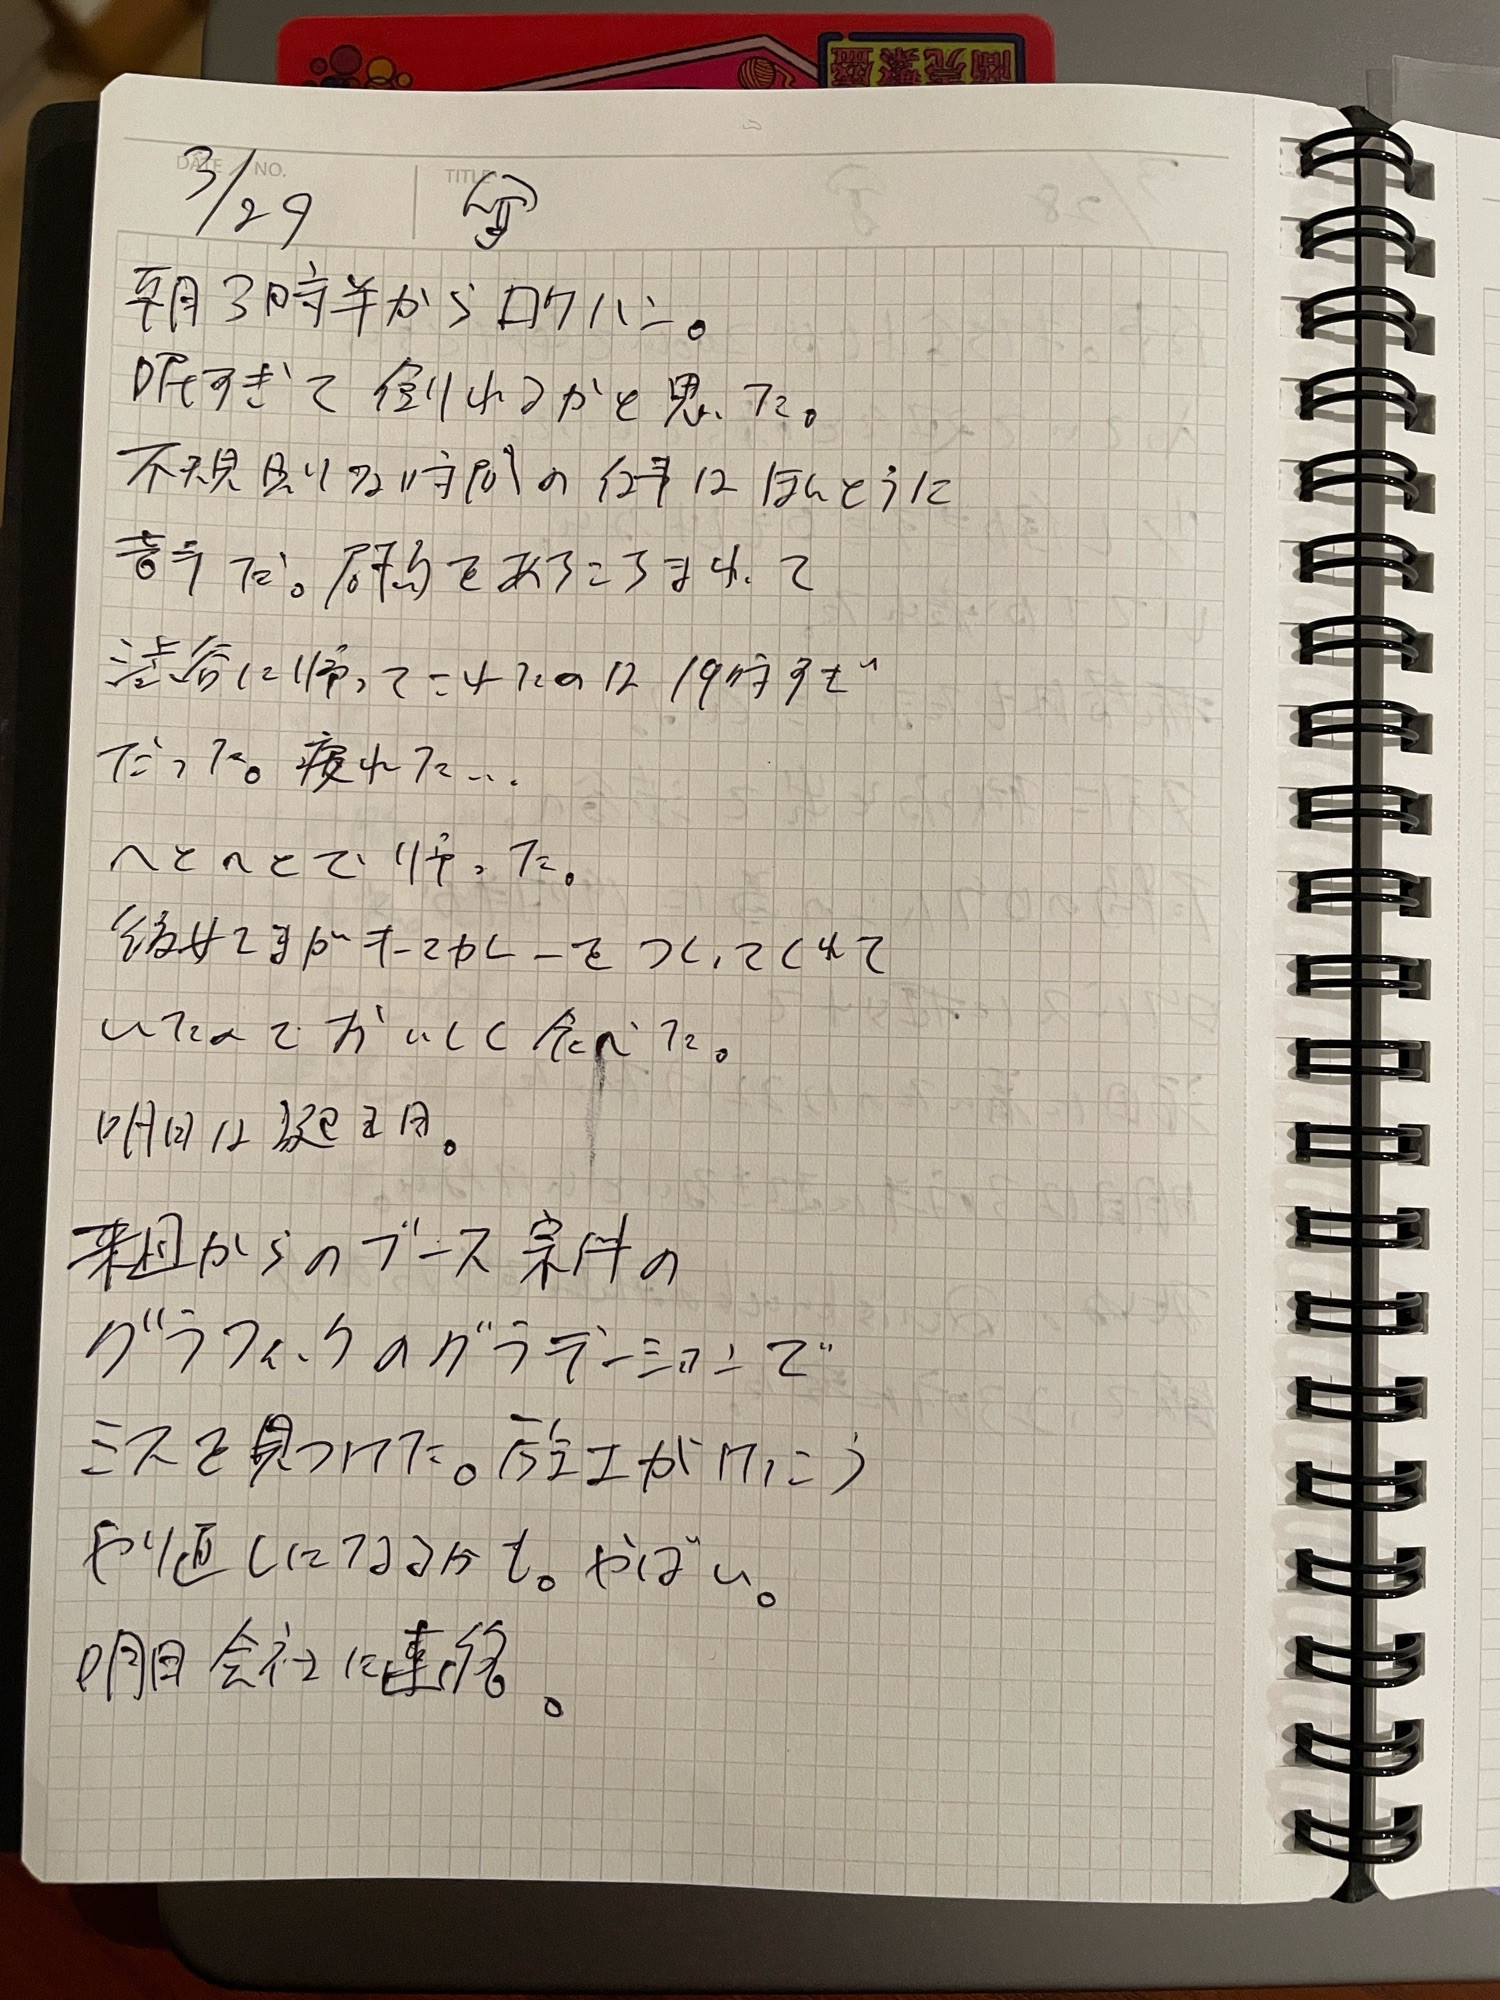 DATE / NO.
TITLE
3/29
朝3時半からロケハン。
眠すぎて倒れるかと思った。
不規則な時間の仕事はほんとうに
苦手だ。群馬をあちこちまわって
渋谷に帰ってこれたのは19時すぎ
だった。疲れた…
へとへとで帰った。
がキーマカレーをつくってくれて
いたのでおいしく食べた。
明日は誕生日。
来週からのブース案件の
グラフィックのグラデーションで
ミスを見つけた。施工がけっこう
やり直しになるかも。やばい。
明日会社に連絡。